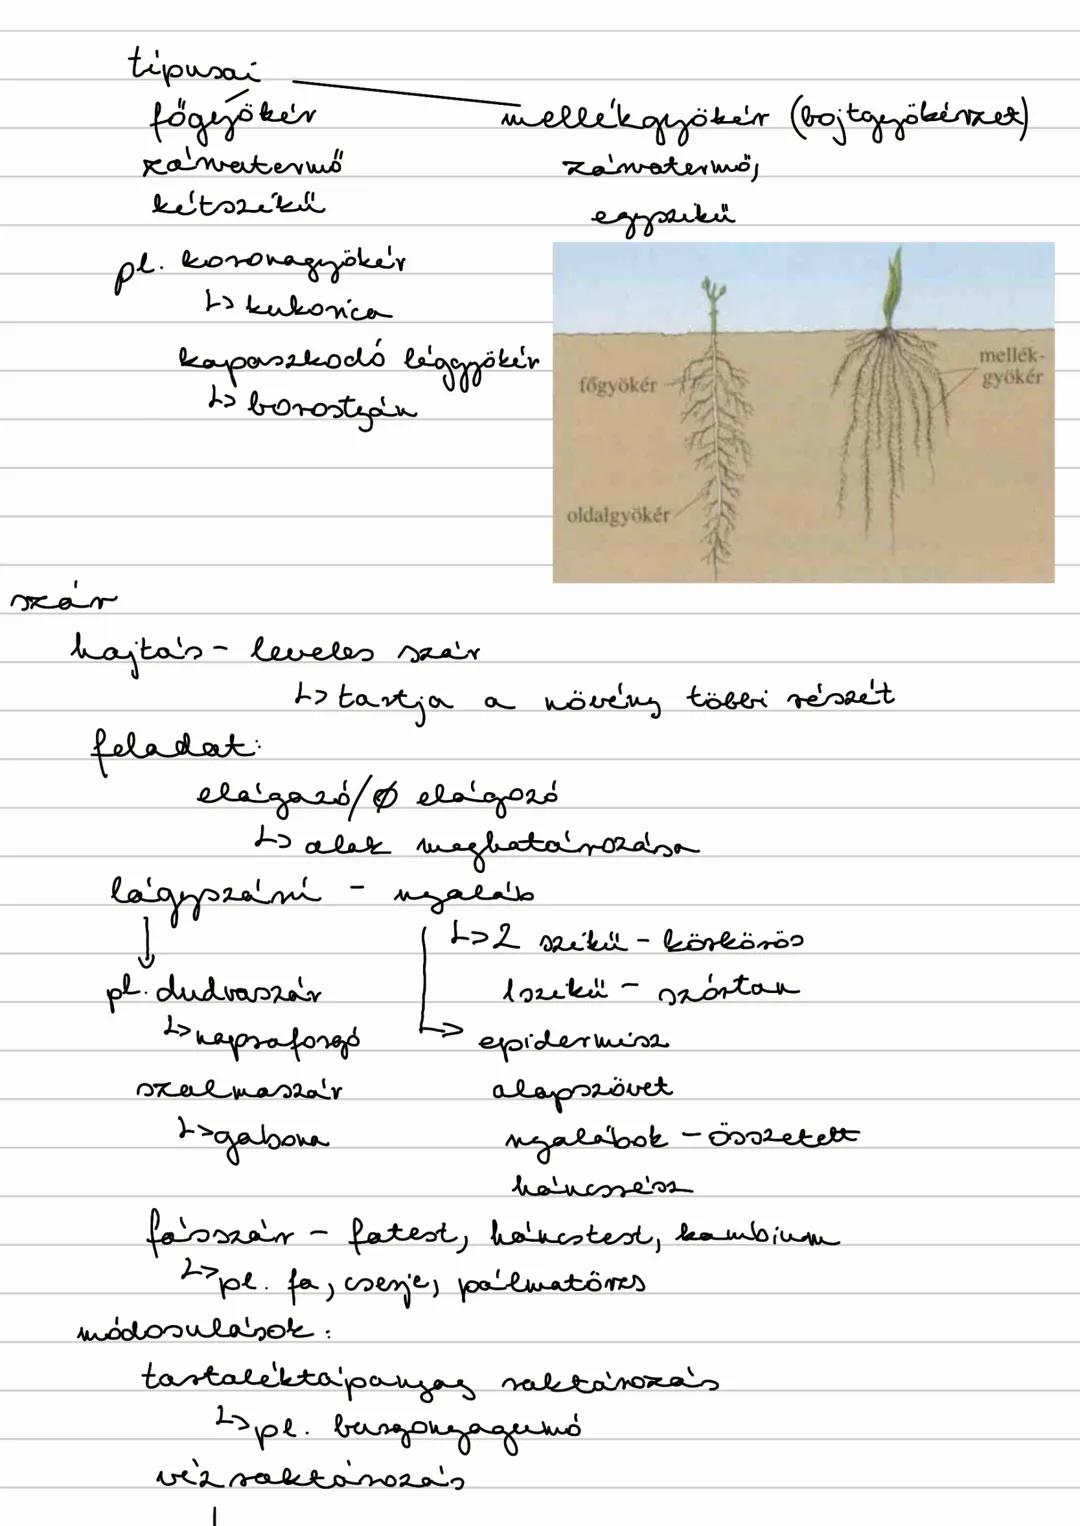 típusai
főgyökér mellékgyökér (bojtgyökérzet)
zárvatermő zárvatermő,
kétszikű egyszikű
pl. koronagyökér
↳ kukorica
kapaszkodó léggyökér
↳ borostyán
főgyökér
mellék-
gyökér
oldalgyökér
szár
hajtás - leveles szár
↳ tartja a növény többi részét
feladat:
elágazó/Ø elágozó
↳ alak meghatározása
lágyszárú - nyaláb
↳ 2 szikű - körkörös
pl. dudvaszár 1szikű - szórtan
↳ napraforgó → epidermisz
szalmaszár alapszövet
↳ gabona nyalábok - összetett
háncsrész
fásszár - fatest, háncstest, kambium
↳ pl. fa, cserje, pálmatörzs
módosulások:
tartaléktápanyag raktározás
↳ pl. burgonyagumó
víz raktározás